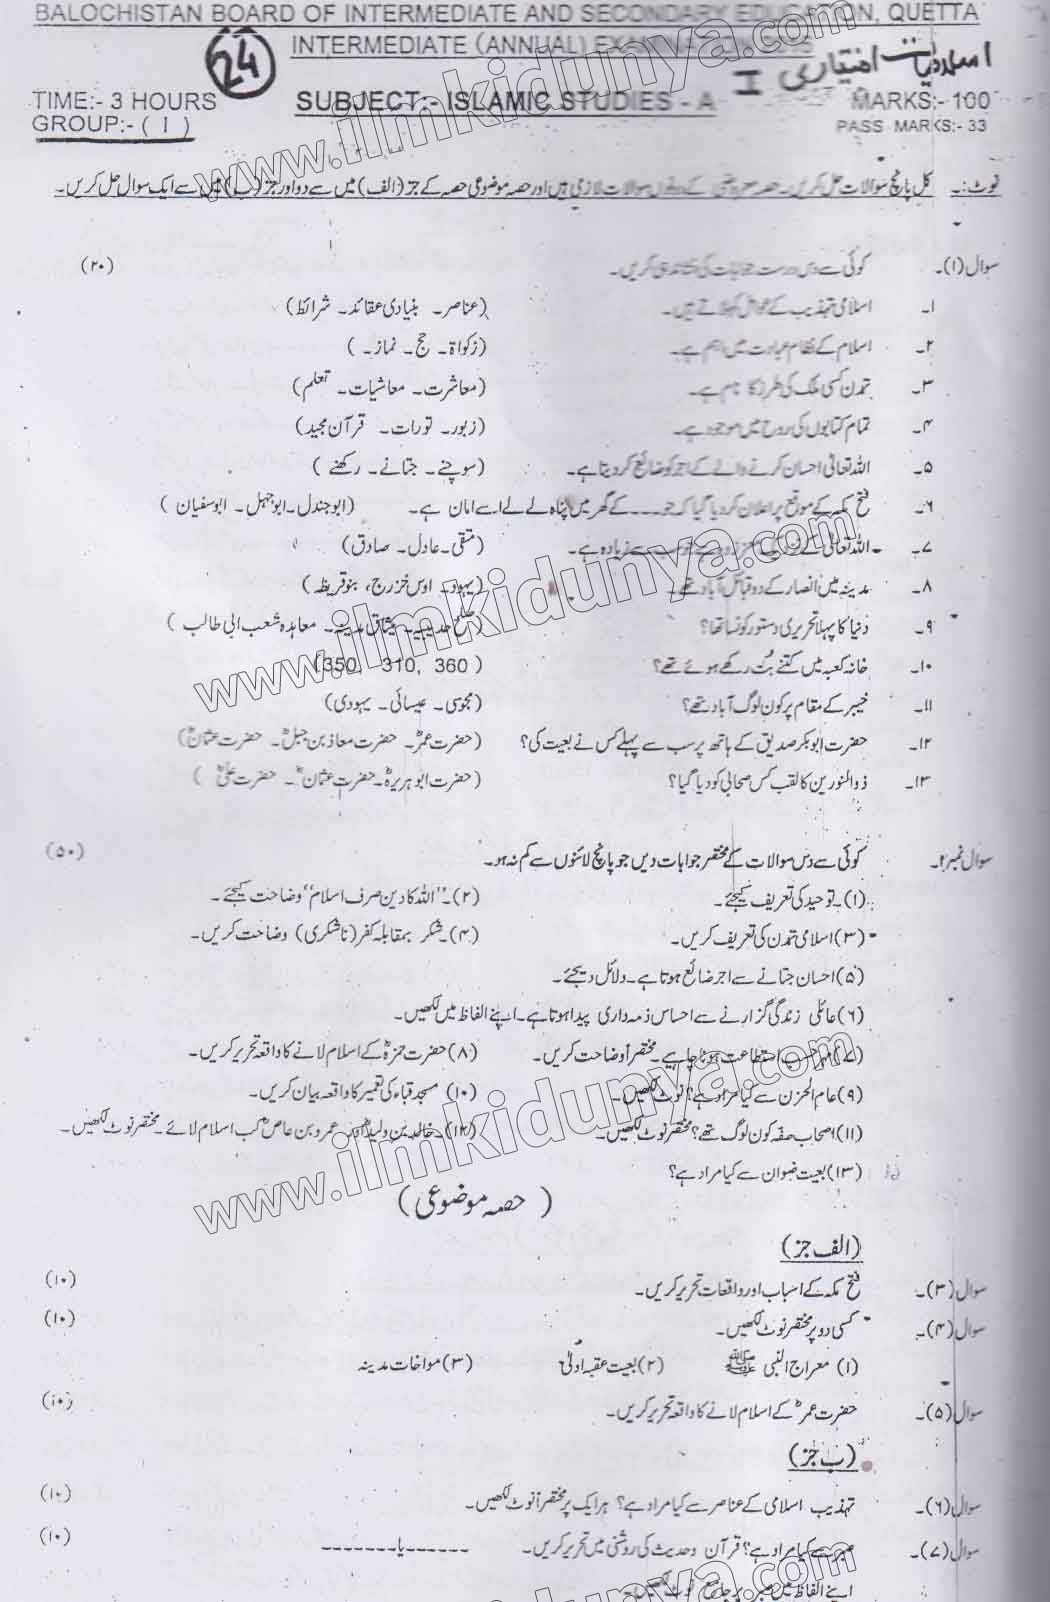 BALOCHISTAN BOARD OF INTERMEDIATE AND SECONDARY EDUCATION, QUETTA
INTERMEDIATE (ANNUAL) EXAMINATION 2015
24
اسلامیات اختیاری I
TIME:- 3 HOURS SUBJECT:- ISLAMIC STUDIES - A MARKS:- 100
GROUP:- ( I ) PASS MARKS:- 33
نوٹ:۔ کل پانچ سوالات حل کریں۔ حصہ معروضی کے دونوں سوالات لازمی ہیں اور حصہ موضوعی حصہ کے جز (الف) میں سے دو اور جز (ب) میں سے ایک سوال حل کریں۔
سوال (۱)۔ کوئی سے دس درست جوابات کی نشاندہی کریں۔ (۲۰)
۱۔ اسلامی تہذیب کے عوامل کہلاتے ہیں۔ (عناصر۔ بنیادی عقائد۔ شرائط)
۲۔ اسلام کے نظام عبادت میں اہم ہے۔ (زکواۃ۔ حج۔ نماز۔ )
۳۔ تمدن کسی ملک کی طرز کا نام ہے۔ (معاشرت۔ معاشیات۔ تعلم)
۴۔ تمام کتابوں کی روح میں موجود ہے۔ (زبور۔ تورات۔ قرآن مجید)
۵۔ اللہ تعالیٰ احسان کرنے والے کے اجر کو ضائع کر دیتا ہے۔ (سوچنے۔ جتانے۔ رکھنے )
۶۔ فتح مکہ کے موقع پر اعلان کر دیا گیا کہ جو۔۔۔۔ کے گھر میں پناہ لے لے اسے امان ہے۔ (ابوجندل۔ ابوجہل۔ ابوسفیان )
۷۔ اللہ تعالیٰ کے نزدیک معزز وہ ہے جو سب سے زیادہ ہے۔ (متقی۔ عادل۔ صادق)
۸۔ مدینہ میں انصار کے دو قبائل آباد تھے۔ (یہود۔ اوس خزرج، بنو قریظہ )
۹۔ دنیا کا پہلا تحریری دستور کونسا تھا؟ (صلح حدیبیہ۔ میثاق مدینہ۔ معاہدہ شعب ابی طالب )
۱۰۔ خانہ کعبہ میں کتنے بُت رکھے ہوئے تھے؟ (350, 310, 360 )
۱۱۔ خیبر کے مقام پر کون لوگ آباد تھے؟ (مجوسی۔ عیسائی۔ یہودی)
۱۲۔ حضرت ابوبکر صدیق کے ہاتھ پر سب سے پہلے کس نے بعیت کی؟ (حضرت عمرؓ۔ حضرت معاذ بن جبلؓ۔ حضرت عثمانؓ)
۱۳۔ ذوالنورین کا لقب کس صحابی کو دیا گیا؟ (حضرت ابو ہریرہ۔ حضرت عثمانؓ۔ حضرت علیؓ )
سوال نمبر ۲۔ کوئی سے دس سوالات کے مختصر جوابات دیں جو پانچ لائنوں سے کم نہ ہو۔ (۵۰)
(۱)۔ توحید کی تعریف کیجئے۔ (۲)۔ "اللہ کا دین صرف اسلام" وضاحت کیجئے۔
(۳) اسلامی تمدن کی تعریف کریں۔ (۴)۔ شکر بمقابلہ کفر (ناشکری) وضاحت کریں۔
(۵) احسان جتانے سے اجر ضائع ہوتا ہے۔ دلائل دیجئے۔
(۶) عائلی زندگی گزارنے سے احساس ذمہ داری پیدا ہوتا ہے۔ اپنے الفاظ میں لکھیں۔
(۷) حسب استطاعت ہونا چاہیے۔ مختصراً وضاحت کریں۔ (۸) حضرت حمزہؓ کے اسلام لانے کا واقعہ تحریر کریں۔
(۹) عام الحزن سے کیا مراد ہے؟ نوٹ لکھیں۔ (۱۰) مسجد قباء کی تعمیر کا واقعہ بیان کریں۔
(۱۱) اصحاب صفہ کون لوگ تھے؟ مختصر نوٹ لکھیں۔ (۱۲)۔ خالد بن ولیدؓ اور عمرو بن عاصؓ کب اسلام لائے۔ مختصر نوٹ لکھیں۔
(۱۳) بعیت ضوان سے کیا مراد ہے؟
( حصہ موضوعی )
(الف جز)
سوال (۳)۔ فتح مکہ کے اسباب اور واقعات تحریر کریں۔ (۱۰)
سوال (۴)۔ کسی دو پر مختصر نوٹ لکھیں۔ (۱۰)
(۱) معراج النبی ﷺ (۲) بعیت عقبہ اولیٰ (۳) مواخات مدینہ
سوال (۵)۔ حضرت عمرؓ کے اسلام لانے کا واقعہ تحریر کریں۔ (۱۰)
(ب جز)
سوال (۶)۔ تہذیب اسلامی کے عناصر سے کیا مراد ہے؟ ہر ایک پر مختصراً نوٹ لکھیں۔ (۱۰)
سوال (۷)۔ صبر سے کیا مراد ہے؟ قرآن و حدیث کی روشنی میں تحریر کریں۔ ------یا------- (۱۰)
اپنے الفاظ میں صبر پر جامع نوٹ لکھیں۔
www.ilmkidunya.com
www.ilmkidunya.com
www.ilmkidunya.com
www.ilmkidunya.com